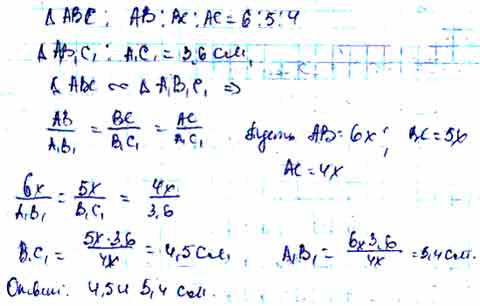 Δ ABC: AB : BC : AC = 6 : 5 : 4
Δ A₁B₁C₁: A₁C₁ = 3,6 см,
Δ ABC ∾ Δ A₁B₁C₁ ⇒
AB/A₁B₁ = BC/B₁C₁ = AC/A₁C₁ Пусть AB = 6x; BC = 5x
AC = 4x
6x/A₁B₁ = 5x/B₁C₁ = 4x/3,6
B₁C₁ = 5x·3,6/4x = 4,5 см, A₁B₁ = 6x3,6/4x = 5,4 см.
Ответ: 4,5 и 5,4 см.